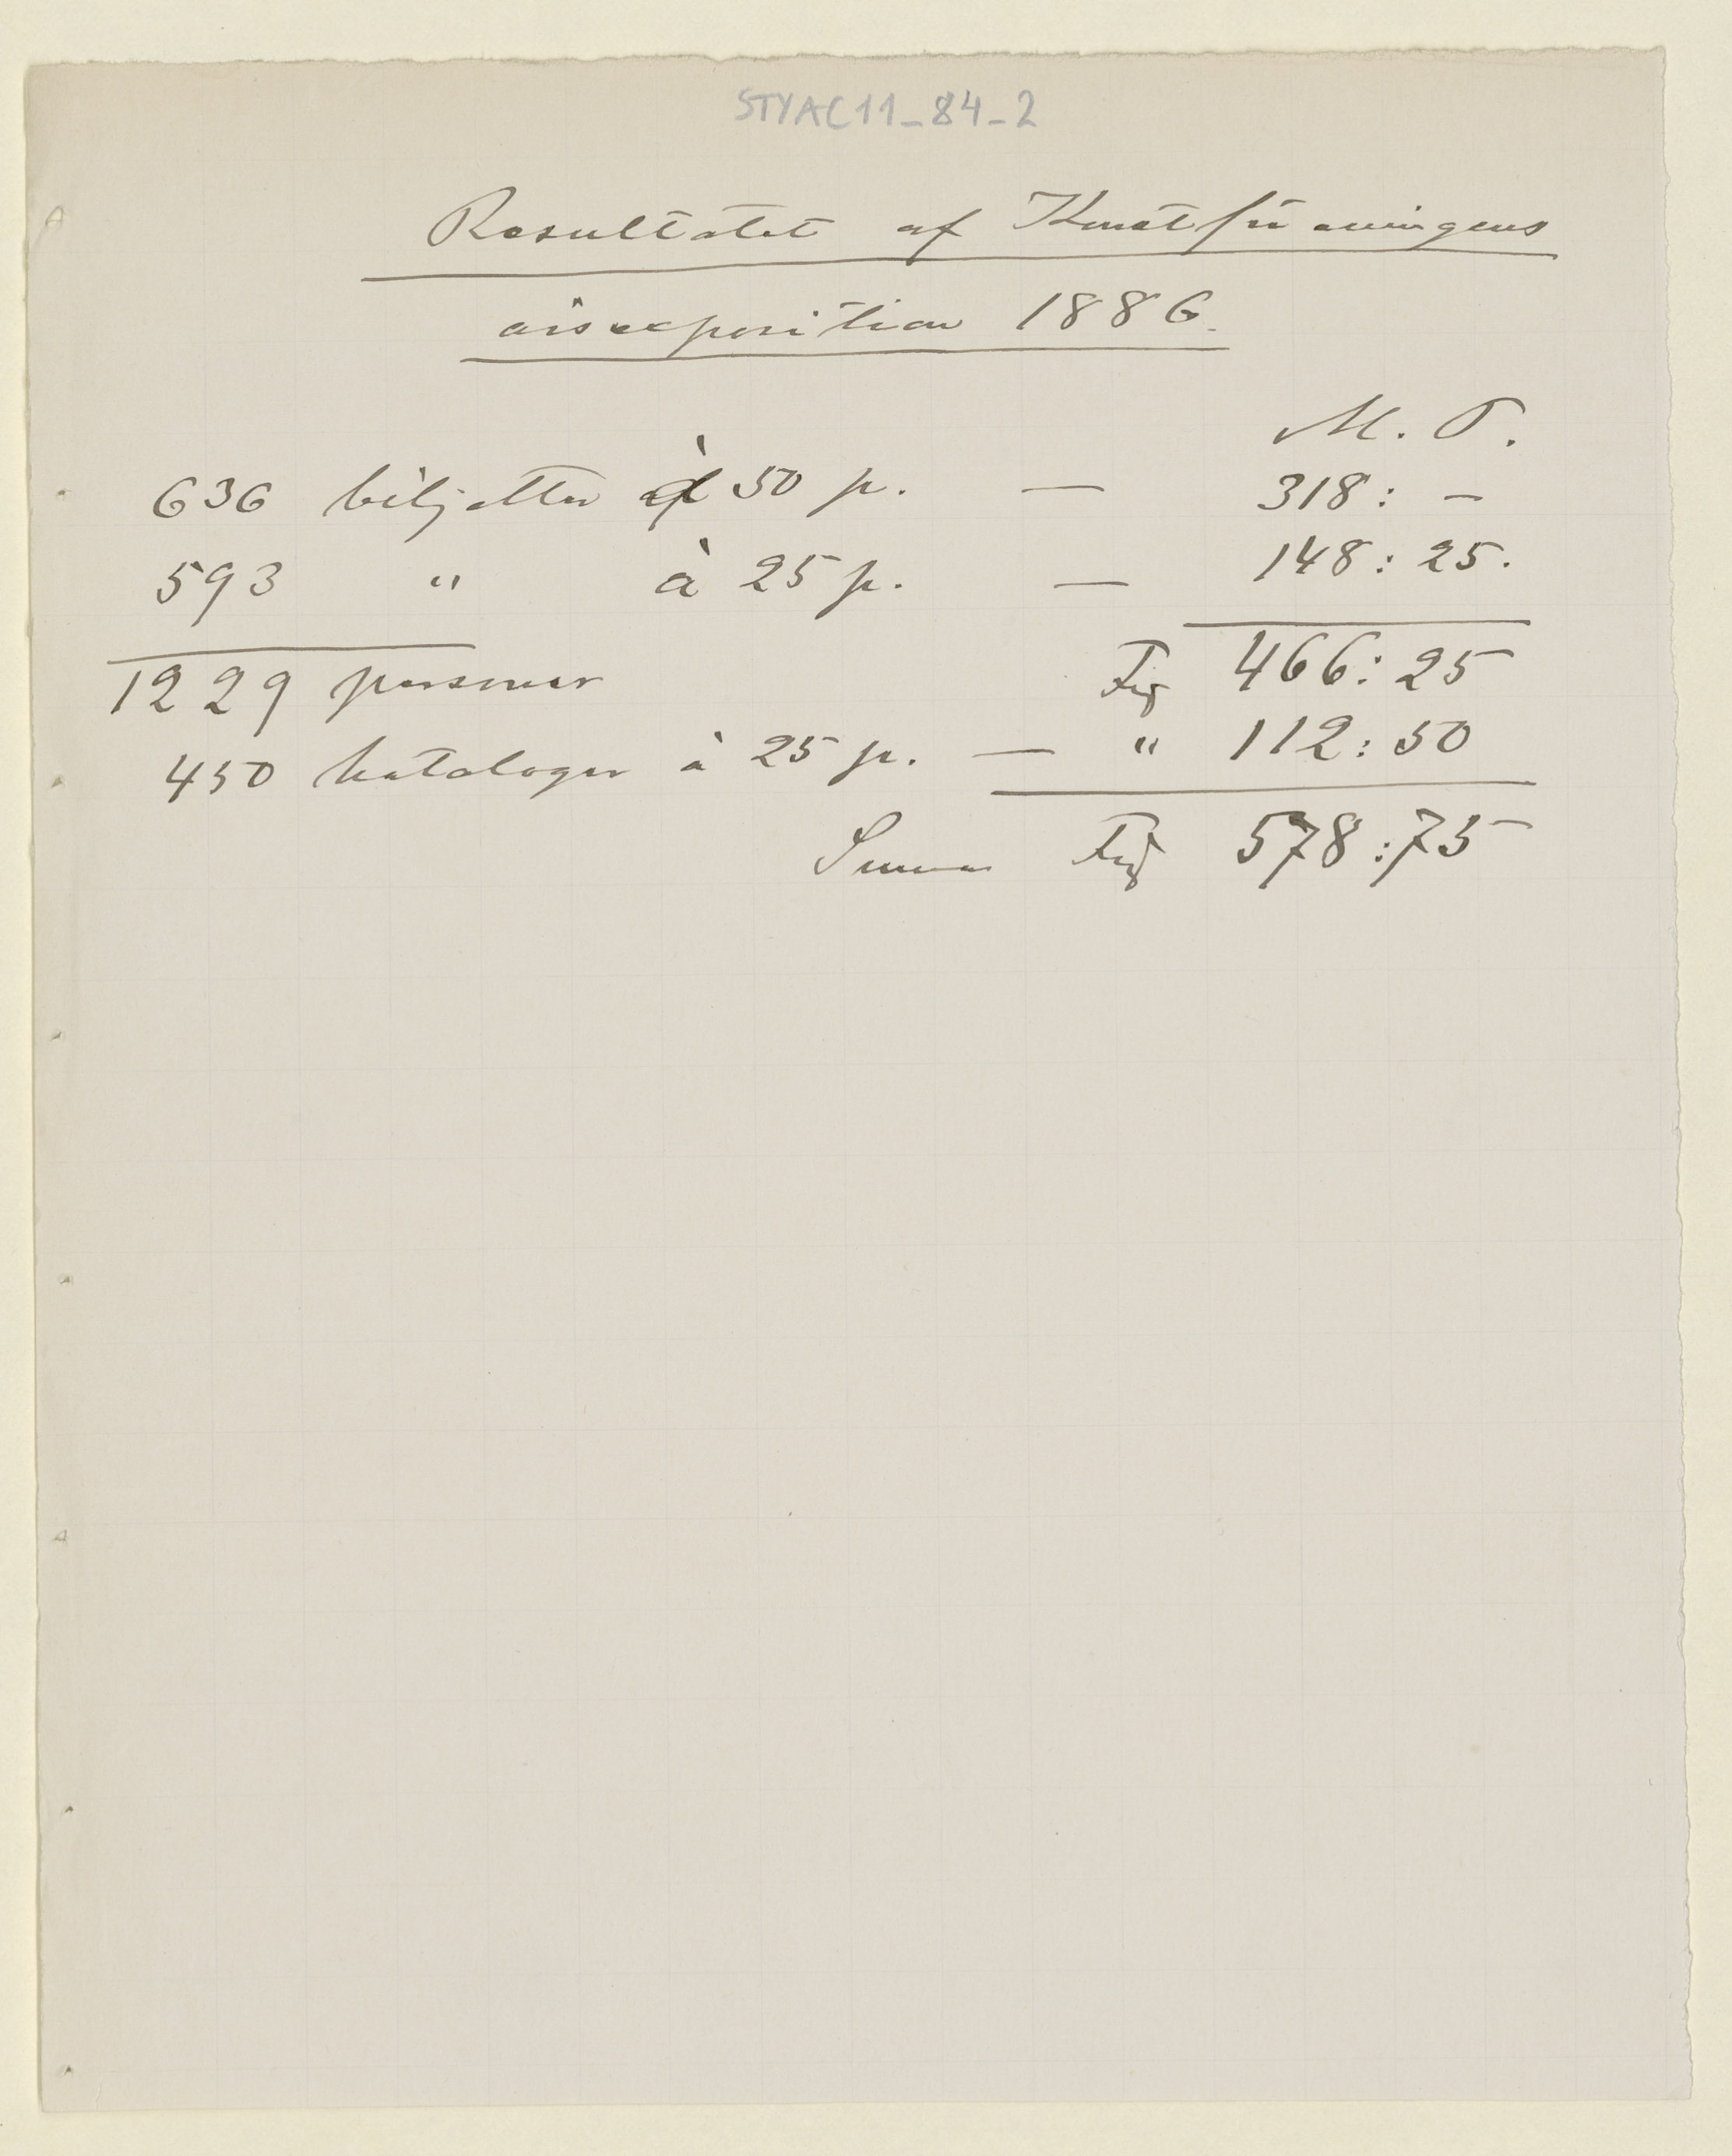 STYAC11_84_2
Resultatet af Konstföreningens
årsexposition 1886.
M. P.
636 biljetter à 50 p. — 318: —
593 " à 25 p. — 148: 25.
1229 personer Fmk 466: 25
450 kataloger à 25 p. — " 112: 50
Summa Fmk 578: 75